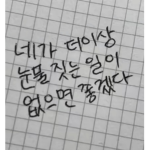 네가 더이상
눈물 짓는 일이
없으면 좋겠다